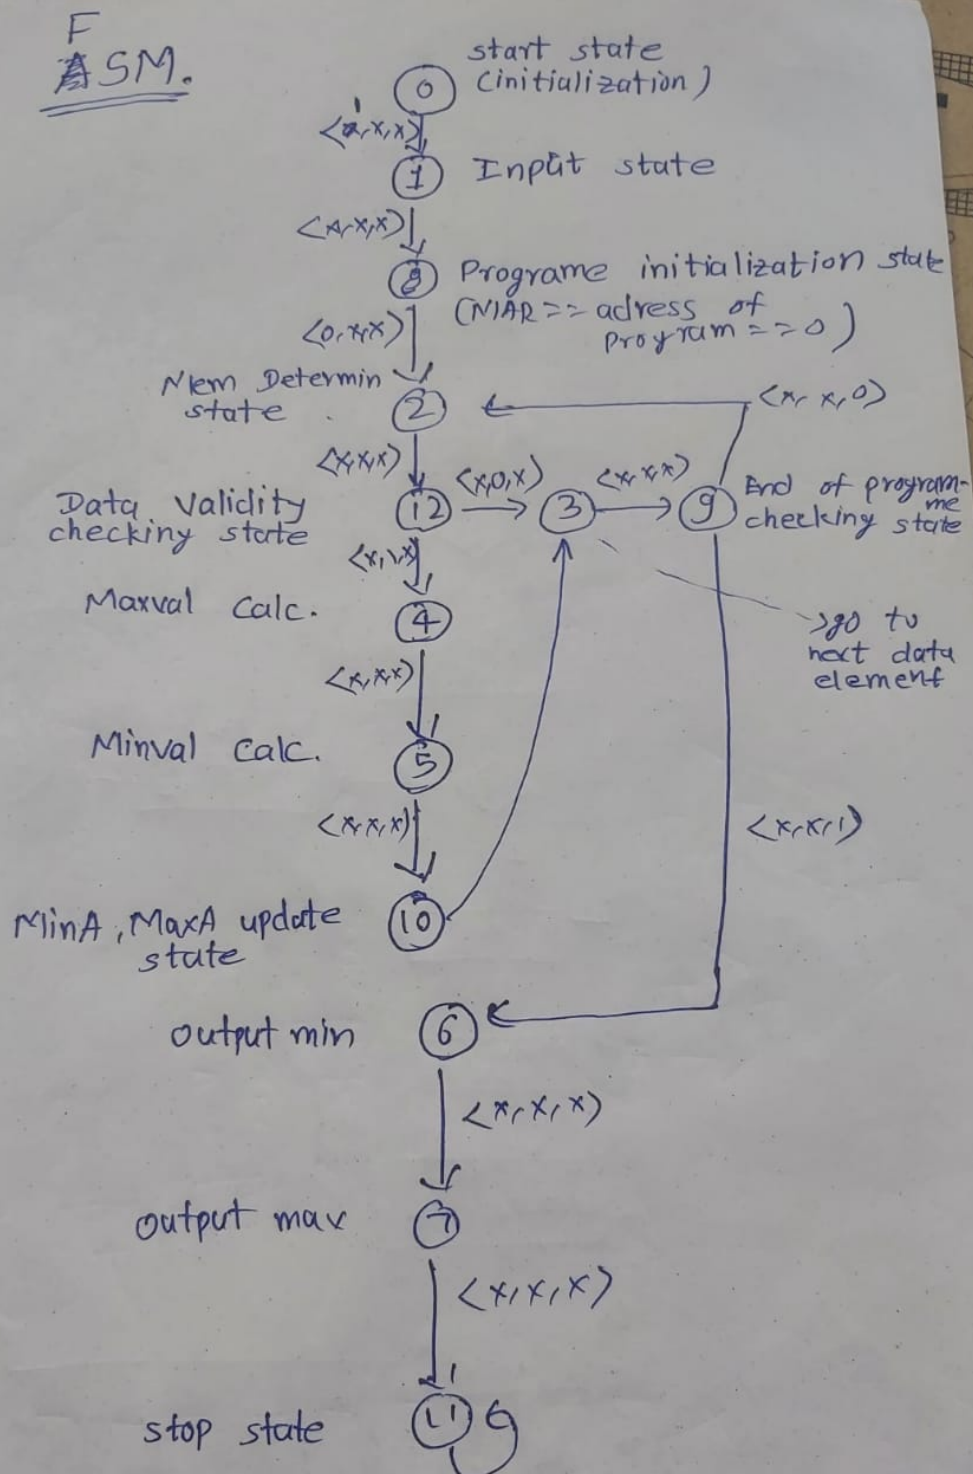 F
ASM.
start state
(initialization)
0
<1,x,x>
1
Input state
<x,x,x>
8
Programe initialization state
(MAR == adress of
Program == 0)
<0,x,x>
Mem Determin
state
2
<x,x,0>
<x,x,x>
<x,0,x>
<x,x,x>
Data validity
checking state
12
3
9
End of program-
me
checking state
<x,1,x>
Maxval calc.
4
>go to
next data
element
<x,x,x>
Minval calc.
5
<x,x,x>
<x,x,1>
MinA, MaxA update
state
10
output min
6
<x,x,x>
output max
7
<x,x,x>
stop state
11